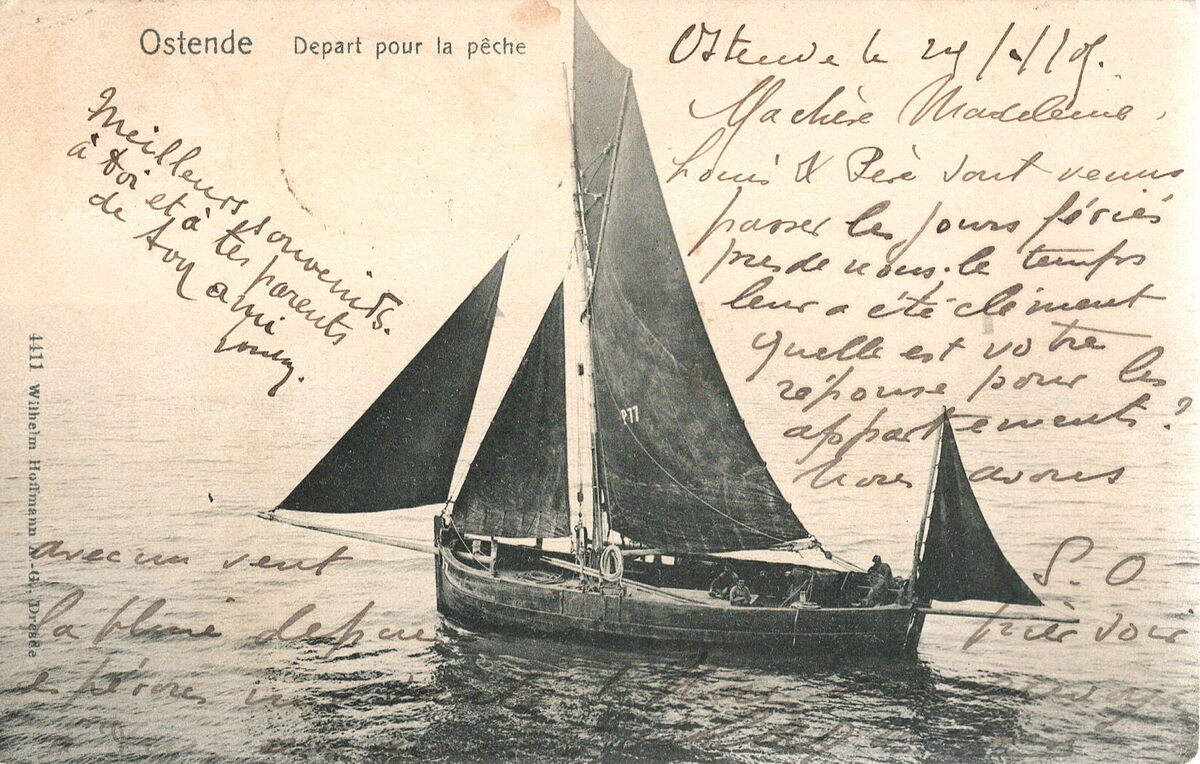 Ostende Depart pour la pêche
Ostende le
Ma chère Madeleine,
Louis & Père sont venus
passer les jours fériés
près de nous. le temps
leur a été clément
quelle est votre
réponse pour les
appartements?
nous avons
avec un vent S. O
la pluie depuis hier soir
espérons
Meilleurs souvenirs
à toi et à tes parents
de ton ami
P.77
4411 Wilhelm Hoffmann A.-G., Dresde